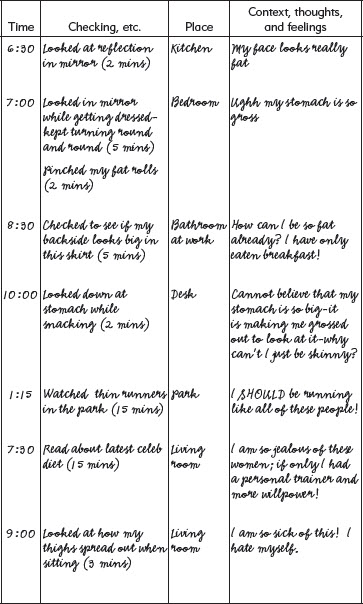 Time Checking, etc. Place Context, thoughts, and feelings
6:30 Looked at reflection Kitchen My face looks really
in mirror (2 mins) fat
7:00 Looked in mirror Bedroom Ughh my stomach is so
while getting dressed- gross
kept turning round
and round (5 mins)
Pinched my fat rolls
(2 mins)
8:30 Checked to see if my Bathroom How can I be so fat
backside looks big in at work already? I have only
this skirt (5 mins) eaten breakfast!
10:00 Looked down at Desk Cannot believe that my
stomach while stomach is so big-it
snacking (2 mins) is making me grossed
out to look at it-why
can't I just be skinny?
1:15 Watched thin runners Park I SHOULD be running
in the park (15 mins) like all of these people!
7:30 Read about latest celeb Living I am so jealous of these
diet (15 mins) room women; if only I had
a personal trainer and
more willpower!
9:00 Looked at how my Living I am so sick of this! I
thighs spread out when room hate myself.
sitting (3 mins)